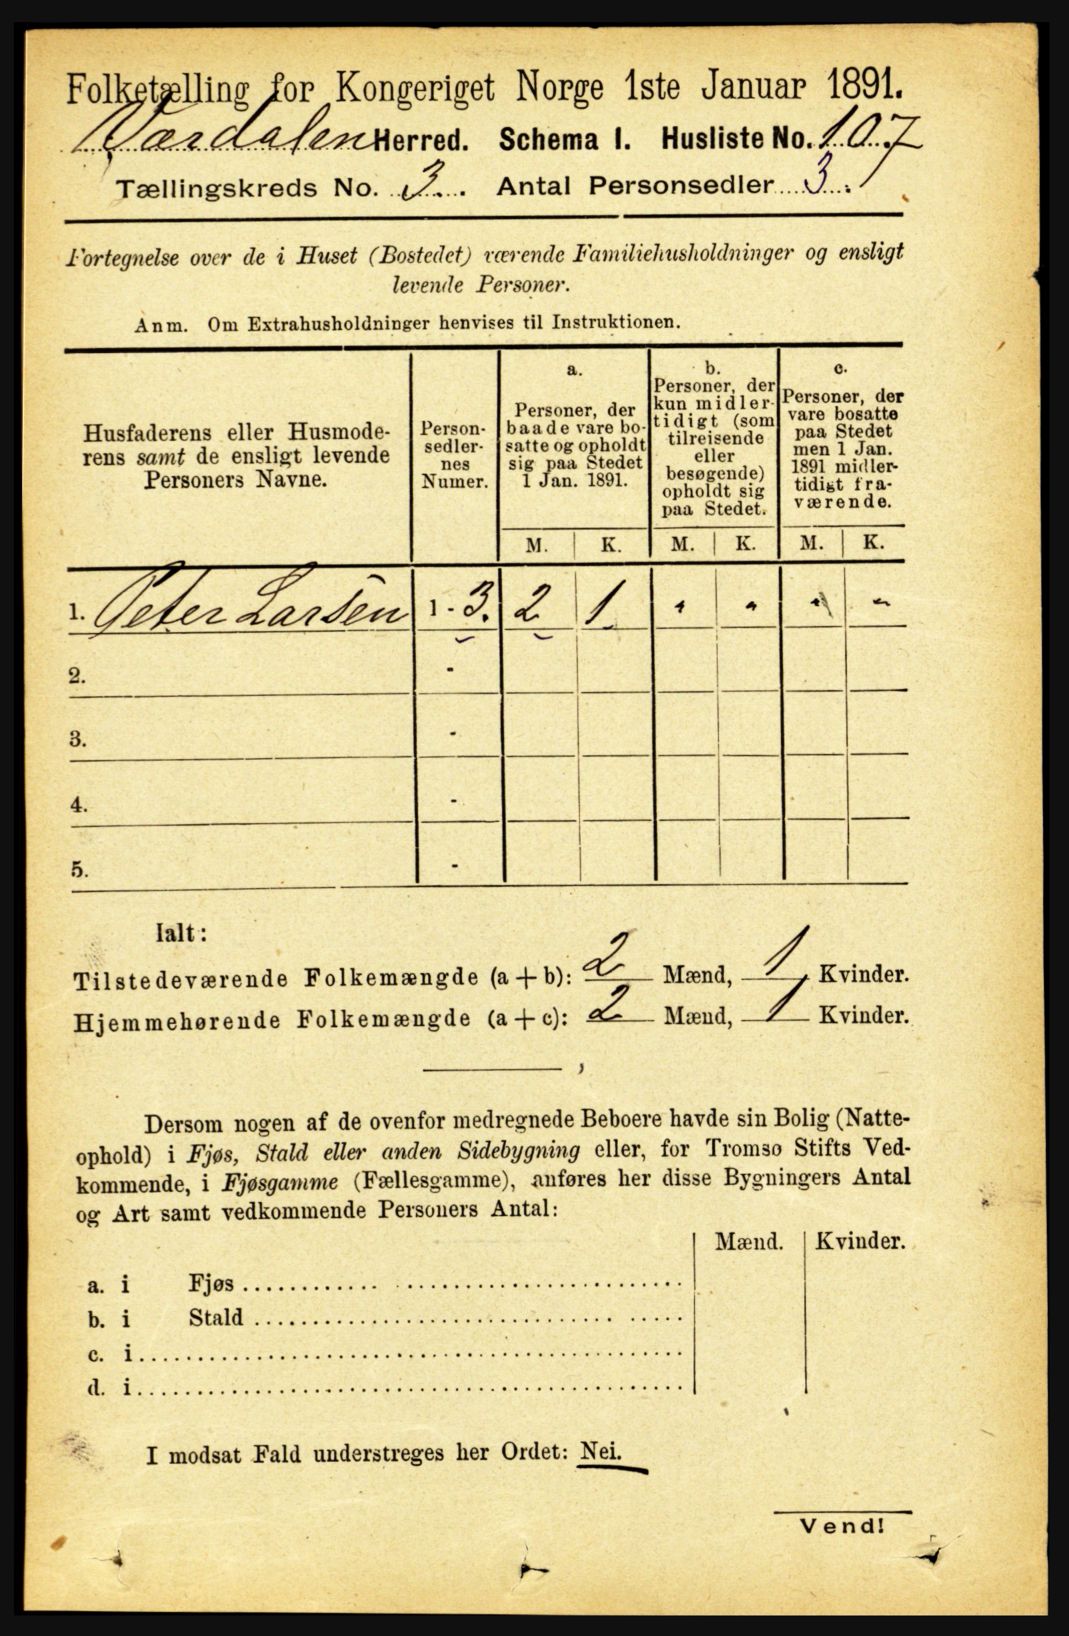 Folketælling for Kongeriget Norge 1ste Januar 1891.
Værdalen Herred. Schema I. Husliste No. 107
Tællingskreds No. 3. Antal Personsedler 3.
Fortegnelse over de i Huset (Bostedet) værende Familiehusholdninger og ensligt
levende Personer.
Anm. Om Extrahusholdninger henvises til Instruktionen.
Husfaderens eller Husmode-
rens samt de ensligt levende
Personers Navne.
Person-
sedler-
nes
Numer.
a.
Personer, der
baade vare bo-
satte og opholdt
sig paa Stedet
1 Jan. 1891.
b.
Personer, der
kun midler-
tidigt (som
tilreisende
eller
besøgende)
opholdt sig
paa Stedet.
c.
Personer, der
vare bosatte
paa Stedet
men 1 Jan.
1891 midler-
tidigt fra-
værende.
M. K. M. K. M. K.
1. Peter Larsen 1 - 3. 2 1 " " " "
2. -
3. -
4. -
5. -
Ialt:
Tilstedeværende Folkemængde (a + b): 2 Mænd, 1 Kvinder.
Hjemmehørende Folkemængde (a + c): 2 Mænd, 1 Kvinder.
Dersom nogen af de ovenfor medregnede Beboere havde sin Bolig (Natte-
ophold) i Fjøs, Stald eller anden Sidebygning eller, for Tromsø Stifts Ved-
kommende, i Fjøsgamme (Fællesgamme), anføres her disse Bygningers Antal
og Art samt vedkommende Personers Antal:
Mænd. Kvinder.
a. i Fjøs
b. i Stald
c. i
d. i
I modsat Fald understreges her Ordet: Nei.
Vend!